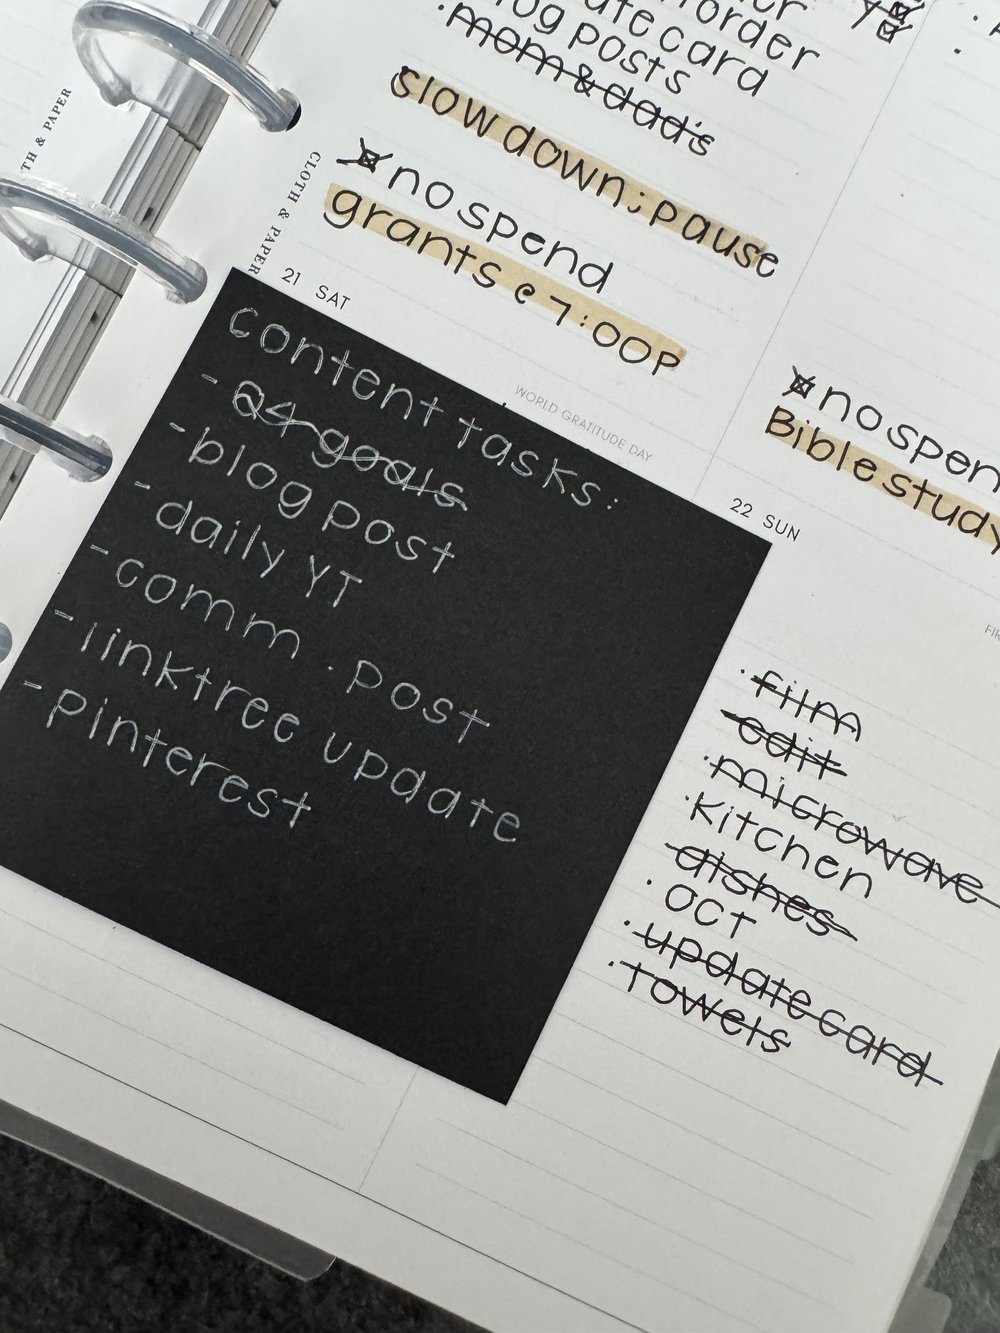 order
card
blog posts
mom & dad's
slow down; pause
no spend
grants @ 7:00P
TH & PAPER
CLOTH & PAPER
21 SAT
WORLD GRATITUDE DAY
content tasks:
- 24 goals
- blog post
- daily YT
- comm. post
- linktree update
- pinterest
no spen
Bible study
22 SUN
· film
edit
· microwave
· kitchen
dishes
· OCT
· update card
· towels